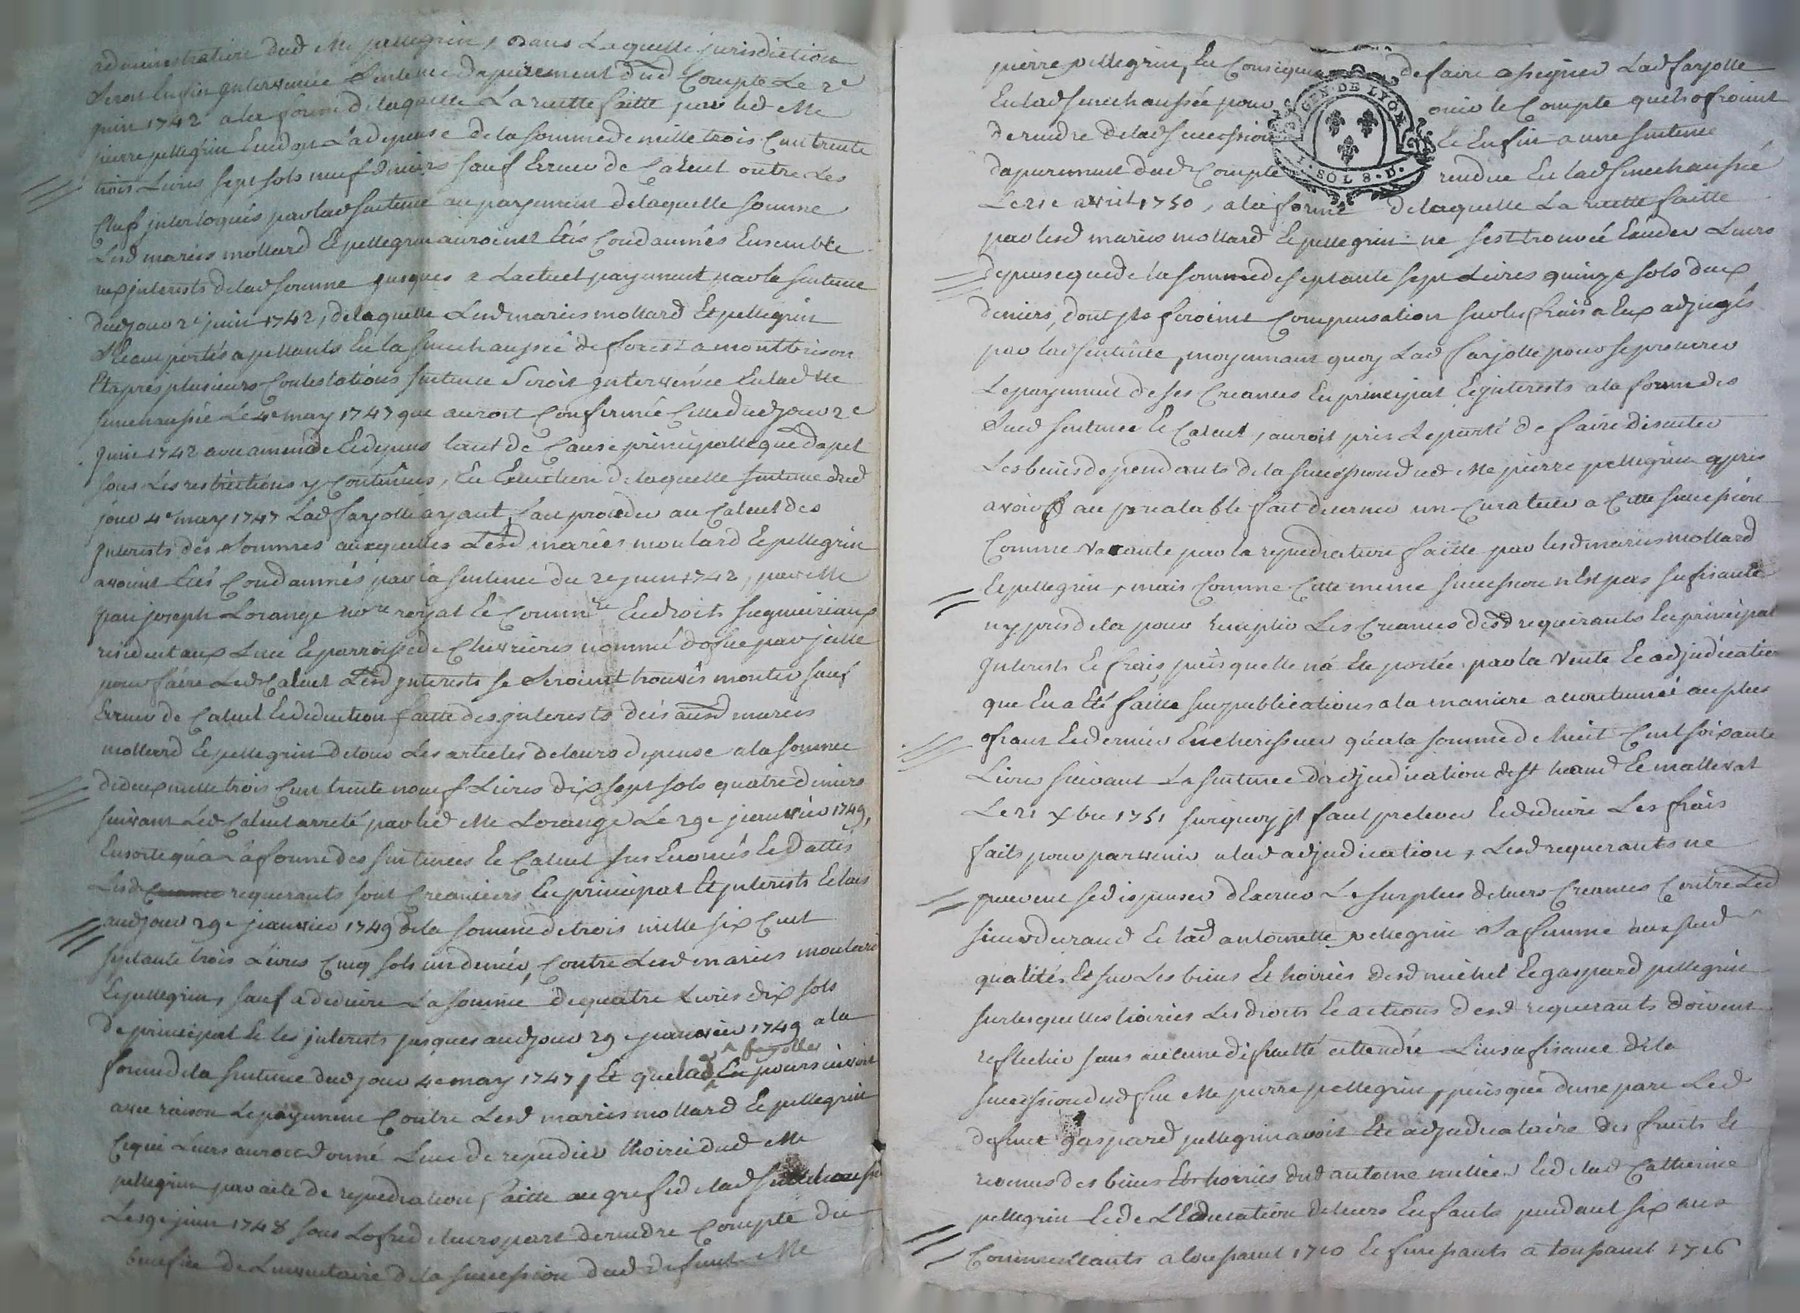 administratire dud Me pellegrin, dans laquelle jurisdiction
seroit enfin intervenue sentence dapurement dud Compte le 2e
juin 1742 a la forme de laquelle la recette faitte par led Me
pierre pellegrin la depense de la somme de mille trois Cent trente
trois livres sept sols neuf deniers sauf Erreur de Calcul outre les
Chefs interloqués par lad sentence au payement de laquelle somme
lesd mariés mollard Et pellegrin auroient Etés Condamnés Ensemble
aux interests de lad somme jusques a lactuel payement par la sentence
dud jour 2e juin 1742, de laquelle lesd mariés mollard Et pellegrin
portés apellants En la senechaussée de forest a montbrison
Et apres plusieurs Contestations sentence seroit intervenüe En lad
senechaussée le 4e may 1747 que auroit Confirmée Celle dud jour 2e
juin 1742 avec amende Et depens tant de Cause principalle que dapel
sous les restrictions y Contenües, En Execution de laquelle sentence dud
jour 4e may 1747 lad farjolle ayant fait proceder au Calcul des
interests des sommes auxquelles lesd mariés moulard Et pellegrin
avoient Etés Condamnés par la sentence du 2e juin 1742, par Me
jean joseph Lorange nore royal Et Commre En droits seigneuriaux
resident aux lieu Et parroisse de Chevrieres nommé doffice par jcelle
pour faire led Calcul lesd interests se seroient trouvés monter sauf
Erreur de Calcul Et deduction faitte des interests deus ausd mariés
mollard Et pellegrin de tous les articles de leurs depense a la somme
de deux mille trois Cent trente neuf livres dix sept sols quatre deniers
suivant led Calcul arreté par led Me Lorange le 29e janvier 1749,
Ensorte qu'a la forme des sentences Et Calcul sus Enoncés Et dattés
lesd requerants sont Creanciers En principal Et interests
audjour 29e janvier 1749 de la somme de trois mille six Cent
septante trois livres Cinq sols un denier, Contre lesd mariés moulard
Et pellegrin, sauf a deduire la somme de quatre livres dix sols
de principal Et les interests jusques audjour 29e janvier 1749 a la
forme de la sentence dud jour 4e may 1747, Et que lad farjolle En poursuivoit
avec raison le payement Contre lesd mariés mollard Et pellegrin
Ce qui leurs auroit donné lieu de repudier lhoirie dud Me
pellegrin par acte de repudiation faitte au greffe de lad senechaussée
le 19e juin 1748 sous lofre de leurs part de rendre Compte du
benefice de linventaire de la succession dud defunt Me
pierre pellegrin, En Consequence de faire assigner lad farjolle
En lad senechaussée pour ouir le Compte quils ofroient
de rendre de lad succession Et Enfin a une sentence
dapurement dud Compte rendue En lad senechaussée
le 21e avril 1750, a la forme de laquelle la recette faitte
par lesd mariés mollard Et pellegrin ne sest trouvée Exceder leurs
depense que de la somme de septante sept livres quinze sols deux
deniers, dont ils feroient Compensation sur les frais a Eux adjugés
par lad sentence, moyennant quoy lad farjolle pour se procurer
le payement de ses Creances En principal Et interests a la forme des
susd sentence Et Calcul, auroit pris le parti de faire discuter
les biens dependants de la succession dud Me pierre pellegrin apres
avoir au prealable fait decerner un Curateur a Cette succession
Comme vacante par la repudiation faitte par lesd mariés mollard
Et pellegrin, mais Comme Cette meme succession n'Est pas sufisante
ny pres de la pour remplir les Creances desd requerants En principal
interests Et frais, puisquelle n'a Eté portée par la vente Et adjudication
que En a Eté faitte sur publications a la maniere accoutumée au plus
ofrant Et dernier Encherisseur qu'a la somme de huit Cent soixante
livres suivant la sentence dadjudication de st haond Et malleval
le 21 Xbre 1751 surquoy jl faut prelever Et deduire les frais
faits pour parvenir a lad adjudication, lesd requerants ne
peuvent se dispenser dExercer le surplus de leurs Creances Contre led
sieur durand Et lad antoinette pellegrin sa femme aux susd
qualités, Et sur les biens Et hoiries desd michel Et gaspard pellegrin
sur lesquelles hoiries les droits Et actions desd requerants doivent
reflechir sans aucune dificulté attendre linsufisance de la
succession dud feu Me pierre pellegrin, puisque dune part led
defunt gaspard pellegrin avoit Eté adjudicataire des fruits Et
revenus des biens Et hoiries dud antoine Et de lad Catherine
pellegrin Et de lEducation de leurs Enfants pendant six ans
Commencants a toussaint 1710 Et finissants a toussaint 1716
GEN DE LYON
1. SOL 8. D.